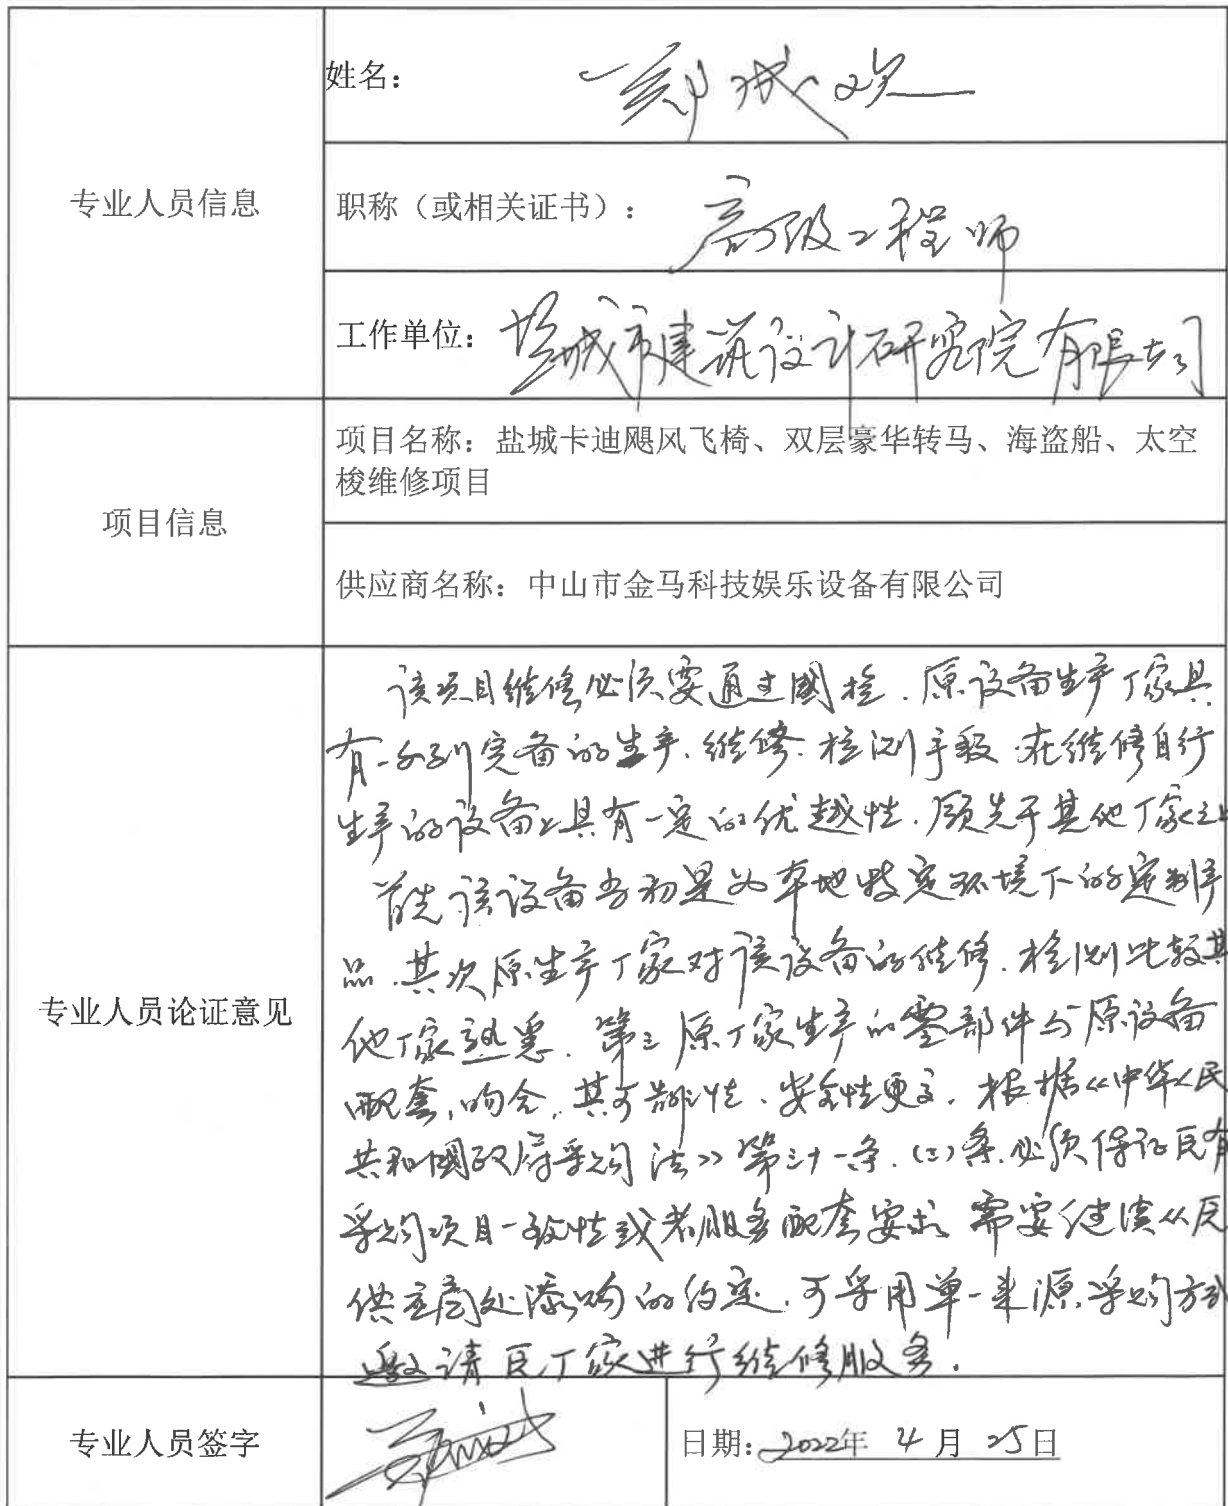 专业人员信息
姓名：
职称（或相关证书）：高级工程师
工作单位：盐城市建筑设计研究院有限公司
项目信息
项目名称：盐城卡迪飓风飞椅、双层豪华转马、海盗船、太空
梭维修项目
供应商名称：中山市金马科技娱乐设备有限公司
专业人员论证意见
该项目维修必须要通过國检．原设备生产厂家具
有一系列完备的生产、维修、检测手段 在维修自行
生产的设备上具有一定的优越性．领先于其他厂家之上
首先该设备当初是为本地特定环境下的定制产
品．其次原生产厂家对该设备的维修．检测比较其
他厂家熟悉．第三原厂家生产的零部件与原设备
配套，吻合，其可靠性、安全性更高．根据《中华人民
共和國政府采购法》第三十一条．(三)条．必须保证原有
采购项目一致性或者服务配套要求 需要继续从原
供应商处添购的约定．可采用单一来源采购方式
邀请原厂家进行维修服务．
专业人员签字
日期：2022年 4 月 25日